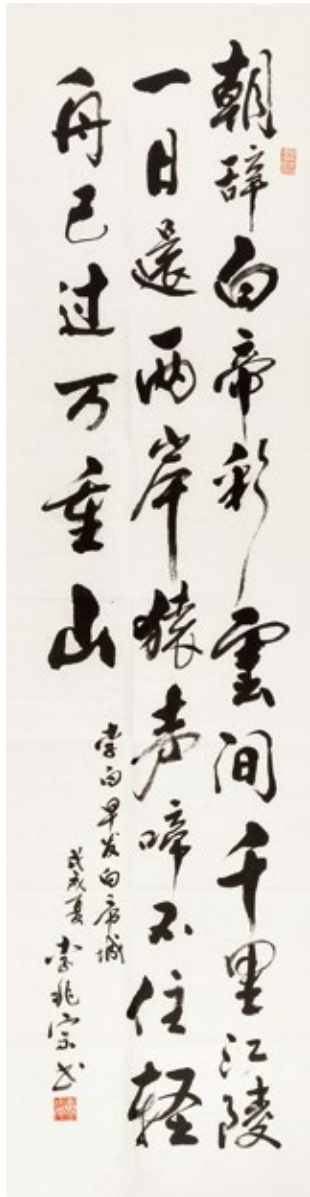 朝辞白帝彩雲间千里江陵
一日還两岸猿声啼不住軽
舟已过万重山
李白早发白帝城
戊戌夏 李兆宗书